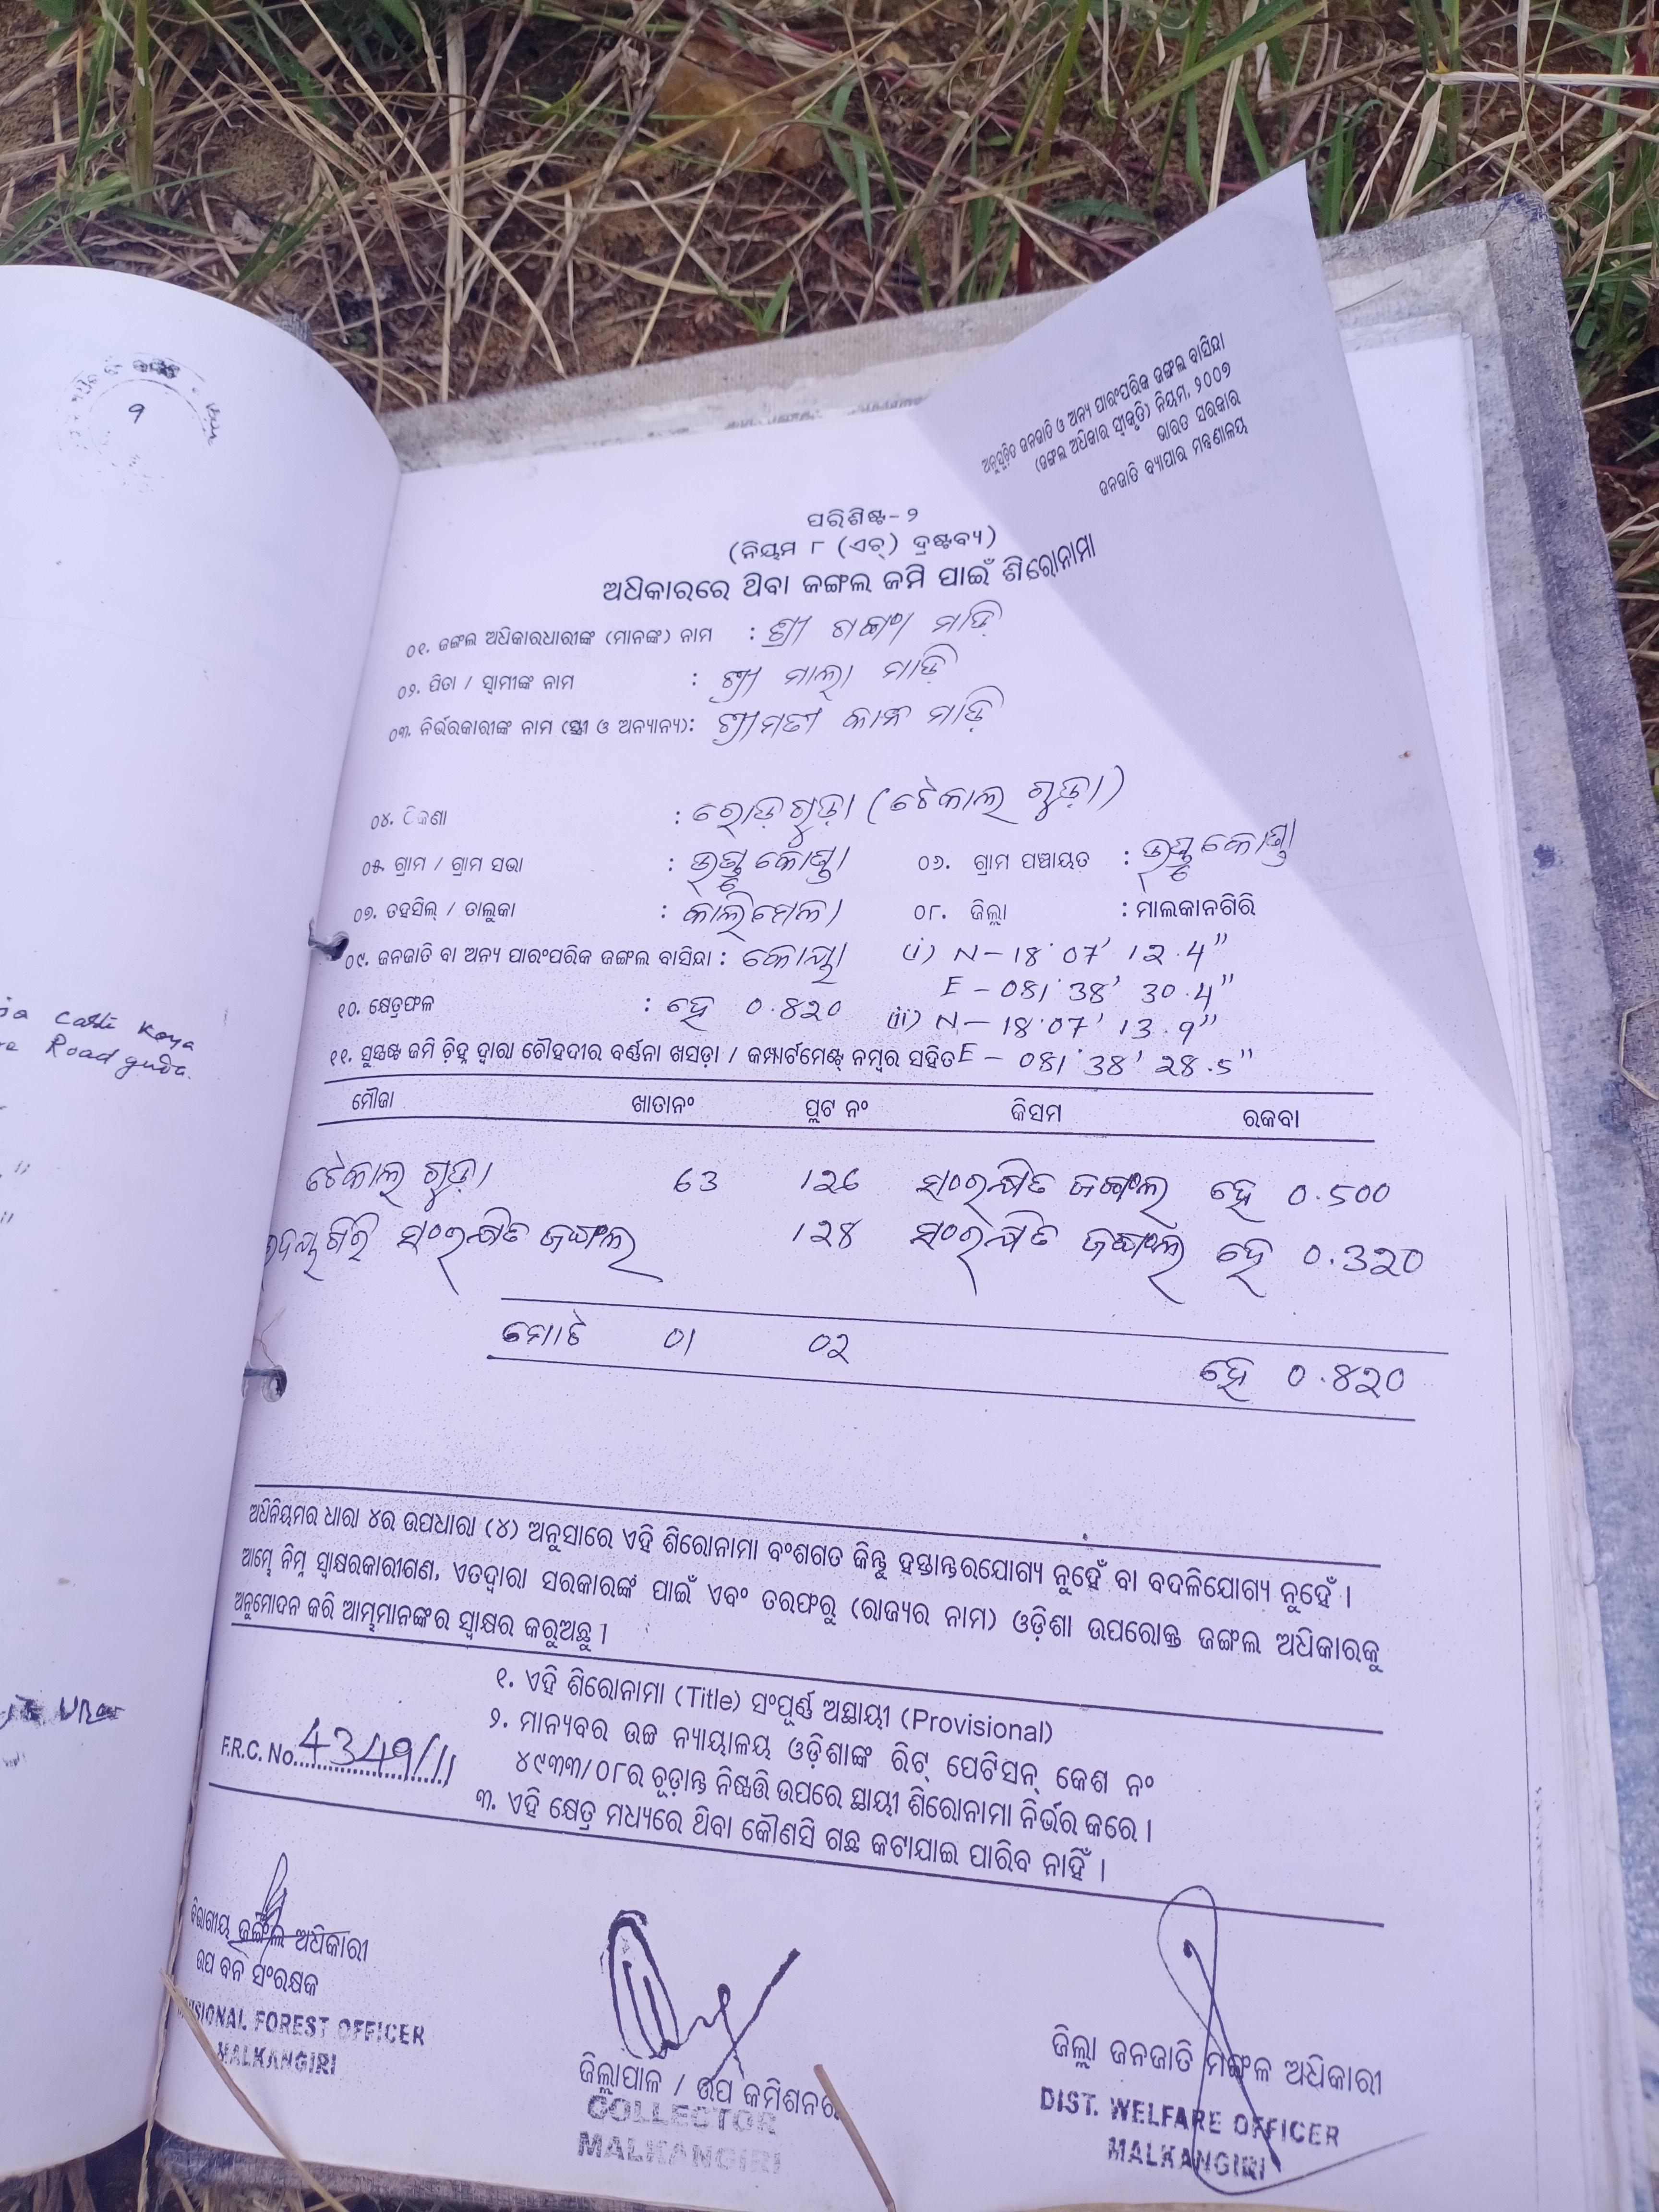 ୨
ia Caste Koya
Road guda.
ଅନୁସୂଚିତ ଜନଜାତି ଓ ଅନ୍ୟ ପାରଂପରିକ ଜଙ୍ଗଲ ବାସିନ୍ଦା
(ଜଙ୍ଗଲ ଅଧିକାର ସ୍ୱୀକୃତି) ନିୟମ, ୨୦୦୭
ଭାରତ ସରକାର
ଜନଜାତି ବ୍ୟାପାର ମନ୍ତ୍ରଣାଳୟ
ପରିଶିଷ୍ଟ-୨
(ନିୟମ ୮ (ଏଚ୍) ଦ୍ରଷ୍ଟବ୍ୟ)
ଅଧିକାରରେ ଥିବା ଜଙ୍ଗଲ ଜମି ପାଇଁ ଶିରୋନାମା
୦୧. ଜଙ୍ଗଲ ଅଧିକାରଧାରୀଙ୍କ (ମାନଙ୍କ) ନାମ : ଶ୍ରୀ ଗଙ୍ଗା ମାଡ଼ି
୦୨. ପିତା / ସ୍ୱାମୀଙ୍କ ନାମ : ଶ୍ରୀ ମାଲା ମାଡ଼ି
୦୩. ନିର୍ଭରକାରୀଙ୍କ ନାମ (ସ୍ତ୍ରୀ ଓ ଅନ୍ୟାନ୍ୟ): ଶ୍ରୀମତୀ ମାଡ଼ି
୦୪. ଠିକଣା : ରୋଡ଼ଗୁଡ଼ା (ଟେକାଲ ଗୁଡ଼ା)
୦୫. ଗ୍ରାମ / ଗ୍ରାମ ସଭା : ୦୬. ଗ୍ରାମ ପଞ୍ଚାୟତ :
୦୭. ତହସିଲ୍ / ତାଲୁକା : କାଲିମେଳା ୦୮. ଜିଲ୍ଲା : ମାଲକାନଗିରି
୦୯. ଜନଜାତି ବା ଅନ୍ୟ ପାରଂପରିକ ଜଙ୍ଗଲ ବାସିନ୍ଦା : କୋୟା (i) N-18°07' 12.4"
E-081°38' 30.4"
୧୦. କ୍ଷେତ୍ରଫଳ : ହେ ୦.୪୨୦ (ii) N-18°07' 13.9"
୧୧. ସୁସ୍ପଷ୍ଟ ଜମି ଚିହ୍ନ ଦ୍ୱାରା ଚୌହଦୀର ବର୍ଣ୍ଣନା ଖସଡ଼ା / କମ୍ପାର୍ଟମେଣ୍ଟ ନମ୍ବର ସହିତ E-081°38' 28.5"
ମୌଜା ଖାତାନଂ ପ୍ଲଟ ନଂ କିସମ ରକବା
ଟେକାଲ ଗୁଡ଼ା 63 126 ସଂରକ୍ଷିତ ଜଙ୍ଗଲ ହେ 0.500
ସଂରକ୍ଷିତ ଜଙ୍ଗଲ 128 ସଂରକ୍ଷିତ ଜଙ୍ଗଲ ହେ 0.320
ମୋଟ 01 02 ହେ 0.820
ଅଧିନିୟମର ଧାରା ୪ର ଉପଧାରା (୪) ଅନୁସାରେ ଏହି ଶିରୋନାମା ବଂଶଗତ କିନ୍ତୁ ହସ୍ତାନ୍ତରଯୋଗ୍ୟ ନୁହେଁ ବା ବଦଳିଯୋଗ୍ୟ ନୁହେଁ ।
ଆମ୍ଭେ ନିମ୍ନ ସ୍ୱାକ୍ଷରକାରୀଗଣ, ଏତଦ୍ଦ୍ୱାରା ସରକାରଙ୍କ ପାଇଁ ଏବଂ ତରଫରୁ (ରାଜ୍ୟର ନାମ) ଓଡ଼ିଶା ଉପରୋକ୍ତ ଜଙ୍ଗଲ ଅଧିକାରକୁ
ଅନୁମୋଦନ କରି ଆମ୍ଭମାନଙ୍କର ସ୍ୱାକ୍ଷର କରୁଅଛୁ ।
୧. ଏହି ଶିରୋନାମା (Title) ସଂପୂର୍ଣ୍ଣ ଅସ୍ଥାୟୀ (Provisional)
୨. ମାନ୍ୟବର ଉଚ୍ଚ ନ୍ୟାୟାଳୟ ଓଡ଼ିଶାଙ୍କ ରିଟ୍ ପେଟିସନ୍ କେଶ ନଂ
୪୯୩୩/୦୮ର ଚୂଡ଼ାନ୍ତ ନିଷ୍ପତ୍ତି ଉପରେ ସ୍ଥାୟୀ ଶିରୋନାମା ନିର୍ଭର କରେ ।
F.R.C. No. 4349/11
୩. ଏହି କ୍ଷେତ୍ର ମଧ୍ୟରେ ଥିବା କୌଣସି ଗଛ କଟାଯାଇ ପାରିବ ନାହିଁ ।
ବିଭାଗୀୟ ଜଙ୍ଗଲ ଅଧିକାରୀ
ଉପ ବନ ସଂରକ୍ଷକ
DIVISIONAL FOREST OFFICER
MALKANGIRI
ଜିଲ୍ଲାପାଳ / ଉପ କମିଶନର
COLLECTOR
MALKANGIRI
ଜିଲ୍ଲା ଜନଜାତି ମଙ୍ଗଳ ଅଧିକାରୀ
DIST. WELFARE OFFICER
MALKANGIRI